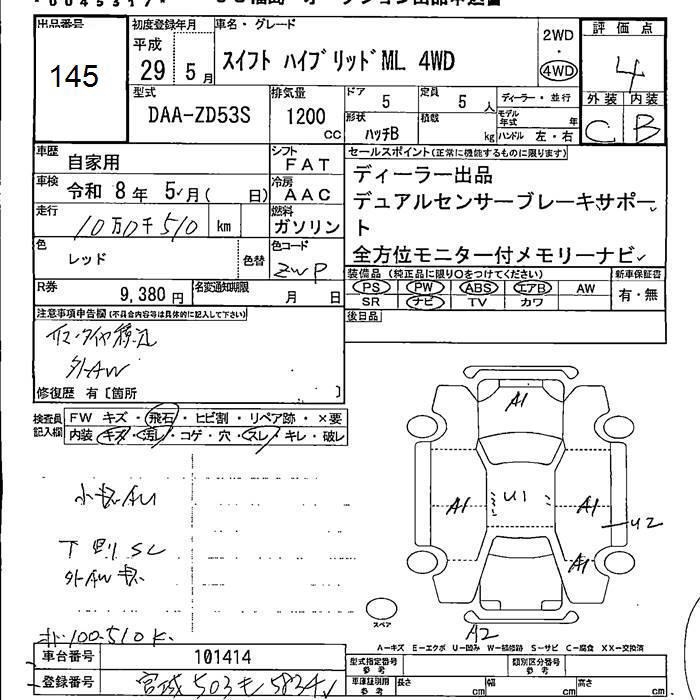 出品番号
145
初度登録年月
平成
29年 5月
車名・グレード
スイフト ハイブリッドML 4WD
2WD
・
4WD
評価点
4
外装 内装
C B
型式
DAA-ZD53S
排気量
1200
cc
ドア
5
定員
5人
形状
ハッチB
積載
kg
ディーラー・並行
モデル年式 年
ハンドル 左・右
車歴
自家用
シフト
FAT
車検
令和 8年 5月( 日)
冷房
AAC
走行
10万0千510 km
燃料
ガソリン
色
レッド
色替
色コード
ZWP
R券
9,380円
名変通知期限
月 日
セールスポイント(正常に機能するものに限ります)
ディーラー出品
デュアルセンサーブレーキサポー
ト
全方位モニター付メモリーナビ
装備品 (純正品に限り〇をつけてください)
PS PW ABS エアB AW
SR ナビ TV カワ
新車保証書
有・無
後日品
注意事項申告欄(不具合内容等は具体的に記入して下さい)
外AW
修復歴 有〔箇所 〕
検査員記入欄
FW キズ・飛石・ヒビ割・リペア跡・×要
内装 キズ・汚レ・コゲ・穴・スレ・キレ・破レ
小キズAU
下廻SC
外AWキズ
100510K
A1
A1
U1
A1
U2
A1
A2
スペア
A-キズ E-エクボ U-凹み W-補修跡 S-サビ C-腐食 XX-交換済
車台番号
101414
登録番号
宮城 503 も 5834
型式指定番号
参考
類別区分番号
参考
車庫証明用
参考
長さ cm
幅 cm
高さ cm